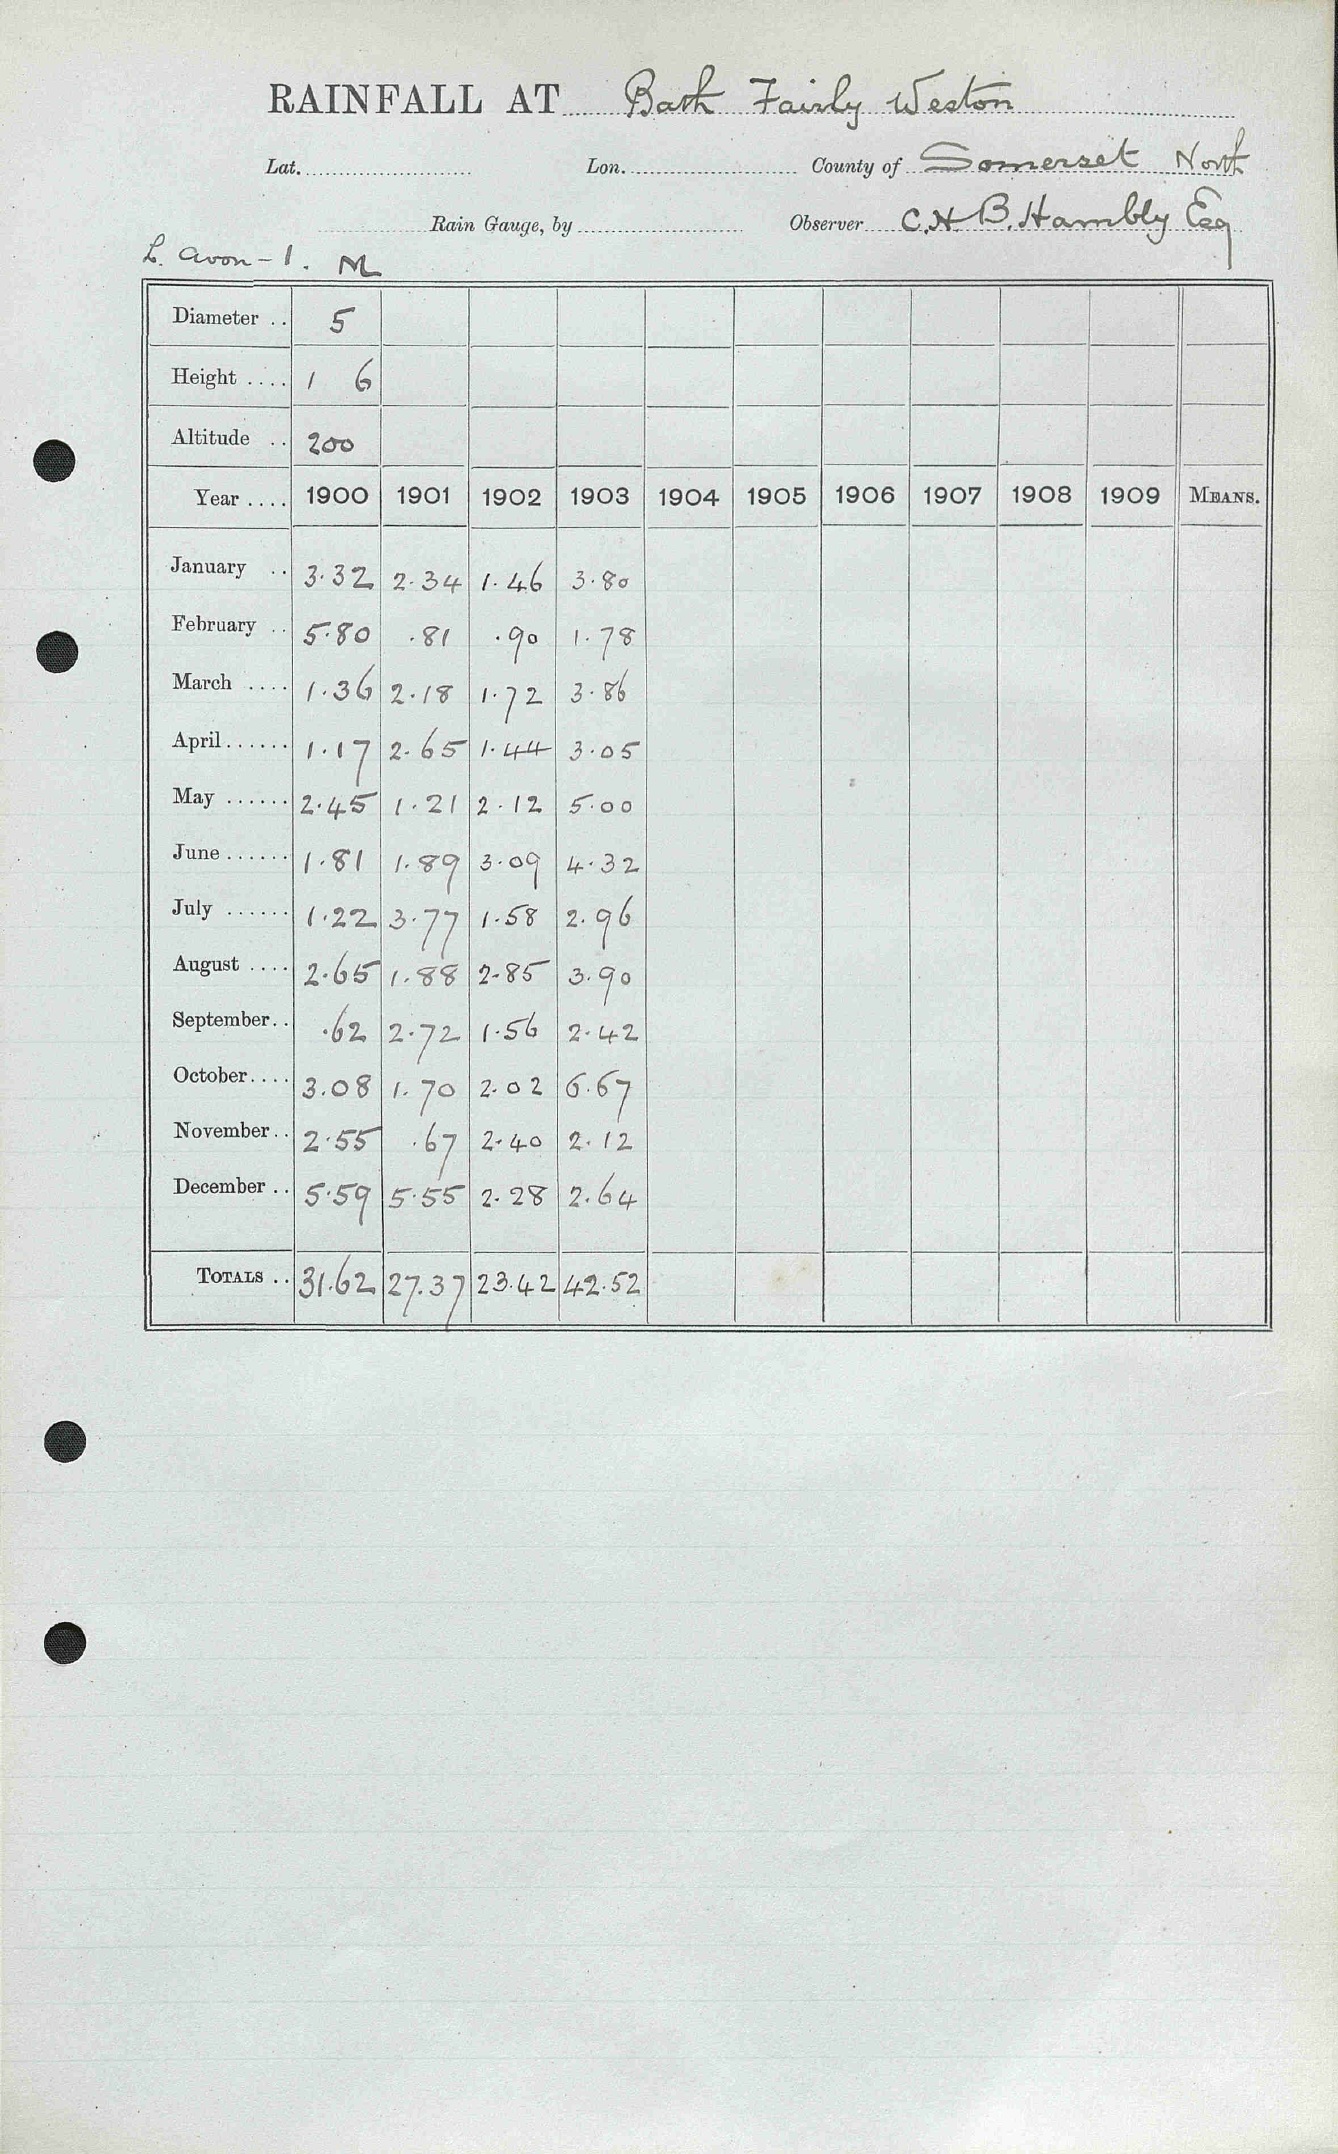 RAINFALL AT Bath Fairly Weston
Lat. Lon. County of Somerset North
Rain Gauge, by Observer C.H.B. Hambly Esq
L. Avon - 1. M
Diameter .. 5
Height .... 1 6
Altitude .. 200
Year .... 1900 1901 1902 1903 1904 1905 1906 1907 1908 1909 MEANS.
January .. 3.32 2.34 1.46 3.80
February .. 5.80 .81 .90 1.78
March .... 1.36 2.18 1.72 3.86
April...... 1.17 2.65 1.44 3.05
May ...... 2.45 1.21 2.12 5.00
June...... 1.81 1.89 3.09 4.32
July ...... 1.22 3.77 1.58 2.96
August .... 2.65 1.88 2.85 3.90
September.. .62 2.72 1.56 2.42
October.... 3.08 1.70 2.02 6.67
November.. 2.55 .67 2.40 2.12
December .. 5.59 5.55 2.28 2.64
TOTALS .. 31.62 27.37 23.42 42.52